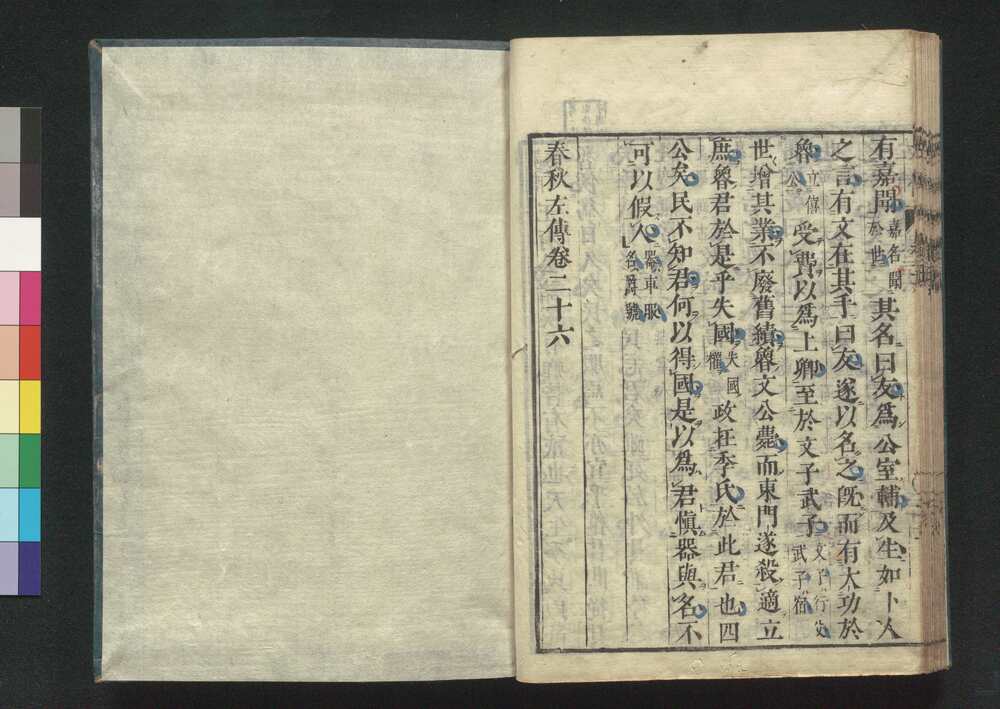 有嘉聞嘉名聞於世其名曰友爲公室輔及生如卜人
之言有文在其手曰友遂以名之旣而有大功於
魯立僖公受費以爲上卿至於文子武子文子行父武子宿
世增其業不廢舊績魯文公薨而東門遂殺適立
庶魯君於是乎失國失國權政在季氏於此君也四
公矣民不知君何以得國是以爲君愼器與名不
可以假人器車服名爵號
春秋左傳卷二十六